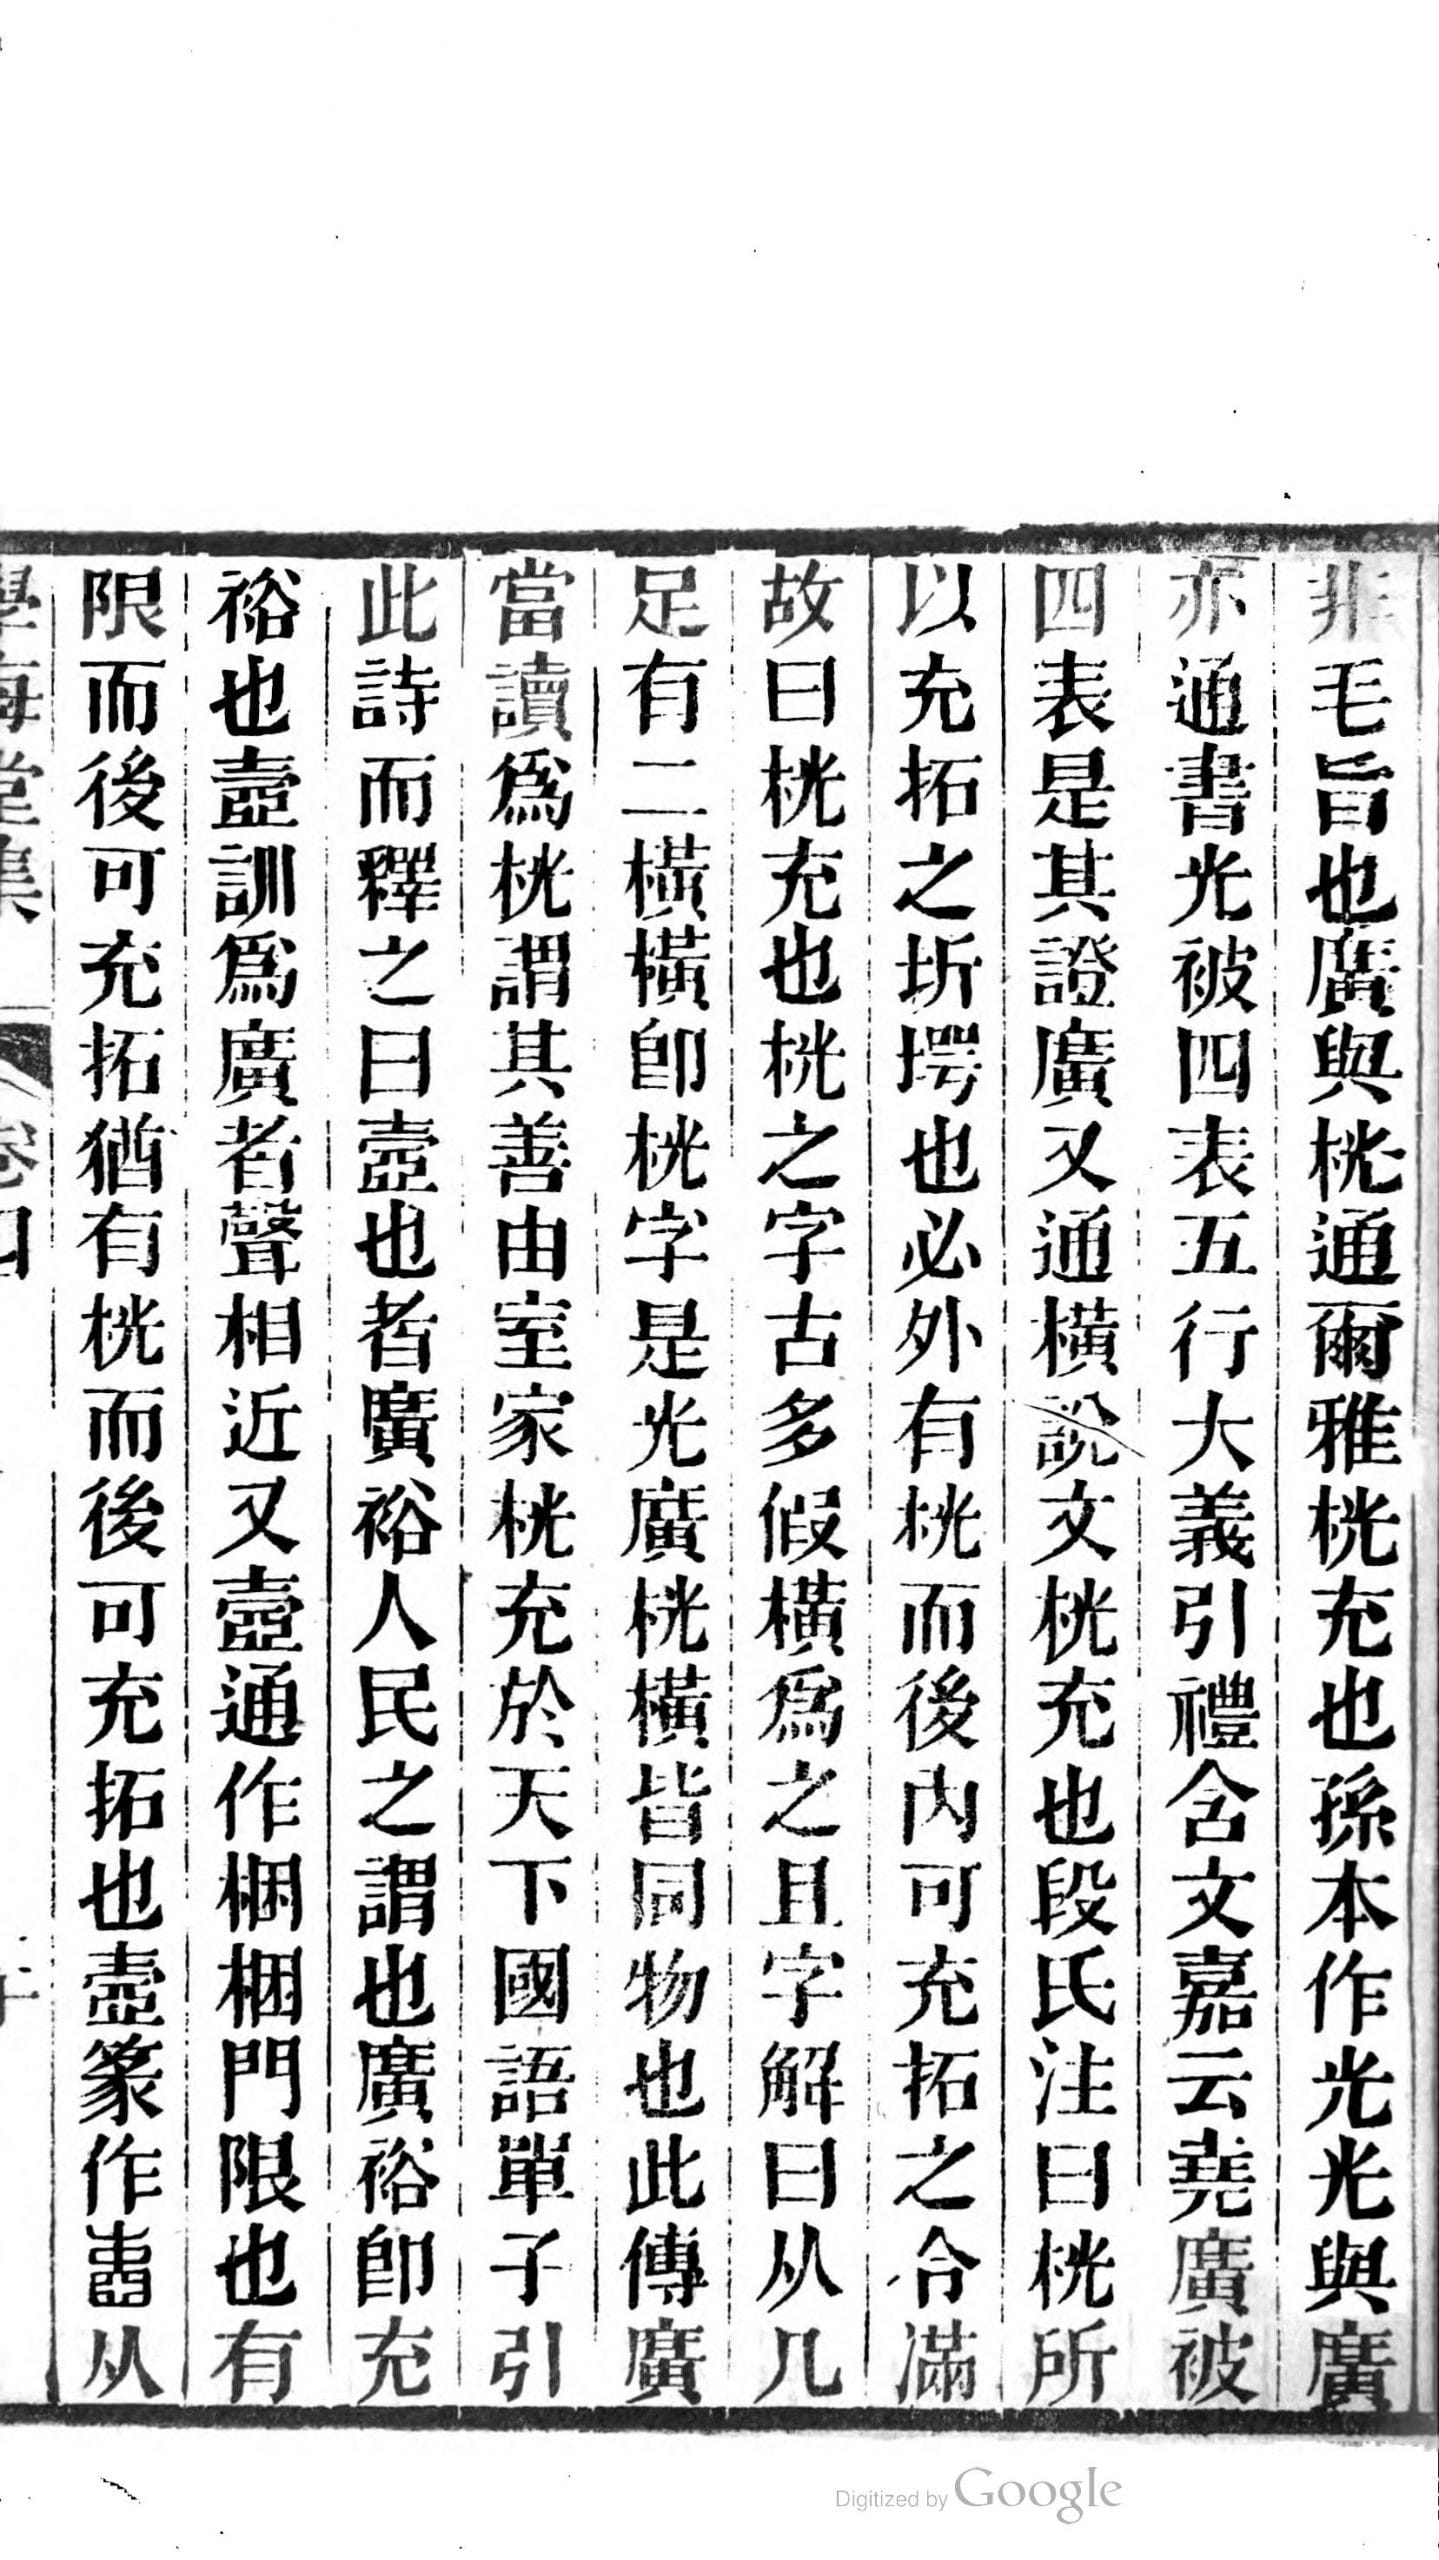 非毛旨也廣與桄通爾雅桄充也孫本作光光與廣
亦通書光被四表五行大義引禮含文嘉云堯廣被
四表是其證廣又通橫說文桄充也段氏注曰桄所
以充拓之圻堮也必外有桄而後內可充拓之合滿
故曰桄充也桄之字古多假橫爲之且字解曰从几
足有二橫橫卽桄字是光廣桄橫皆同物也此傳廣
當讀爲桄謂其善由室家桄充於天下國語單子引
此詩而釋之曰壼也者廣裕人民之謂也廣裕卽充
裕也壼訓爲廣者聲相近又壼通作梱梱門限也有
限而後可充拓猶有桄而後可充拓也壼篆作𡈦从
學海堂集 卷四
Digitized by Google